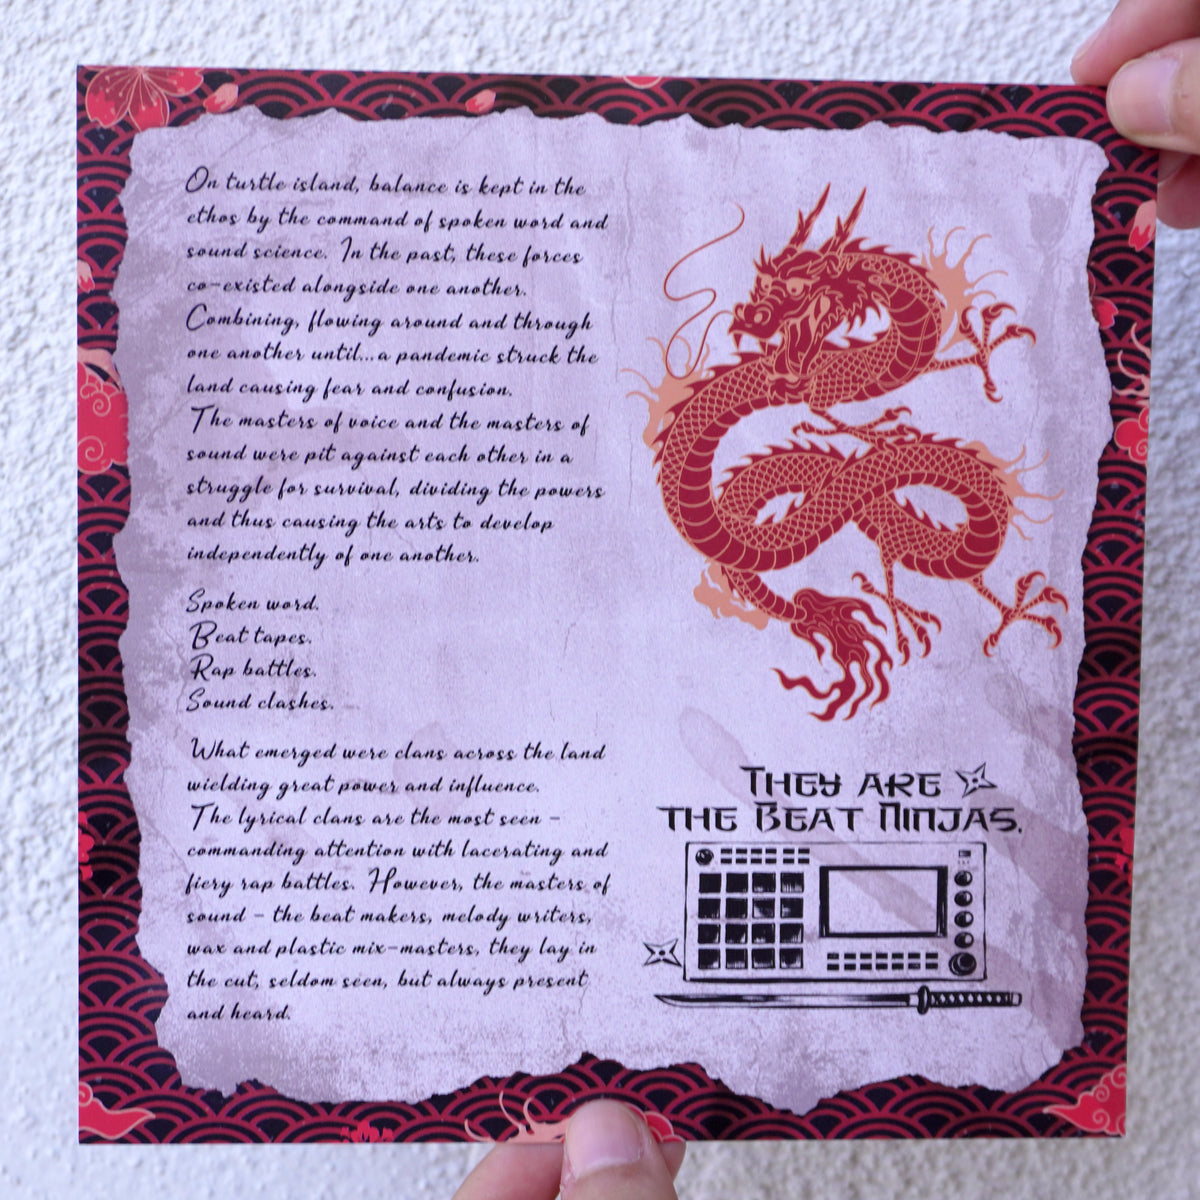 On turtle island, balance is kept in the
ethos by the command of spoken word and
sound science. In the past, these forces
co-existed alongside one another.
Combining, flowing around and through
one another until...a pandemic struck the
land causing fear and confusion.
The masters of voice and the masters of
sound were pit against each other in a
struggle for survival, dividing the powers
and thus causing the arts to develop
independently of one another.
Spoken word.
Beat tapes.
Rap battles.
Sound clashes.
What emerged were clans across the land
wielding great power and influence.
The lyrical clans are the most seen -
commanding attention with lacerating and
fiery rap battles. However, the masters of
sound - the beat makers, melody writers,
wax and plastic mix-masters, they lay in
the cut, seldom seen, but always present
and heard.
They are
the Beat Ninjas.